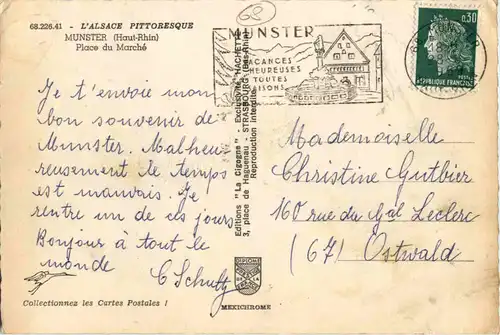 68.226.41 - L'ALSACE PITTORESQUE
MUNSTER (Haut-Rhin)
Place du Marché
68
MUNSTER
VACANCES
HEUREUSES
TOUTES
SAISONS
0,30
RÉPUBLIQUE FRANÇAISE
POSTES
Je t'envoie mon
bon souvenir de
Munster. Malheu
reusement le temps
est mauvais. Je
rentre un de ces jours
Bonjour à tout le
monde
C Schultz
Editions "La Cigogne" - Exclusivité HACHETTE
3, place de Haguenau - STRASBOURG (Bas-Rhin)
Reproduction interdite
Mademoiselle
Christine Gutbier
160 rue du Gal Leclerc
(67) Ostwald
Collectionnez les Cartes Postales !
MEXICHROME